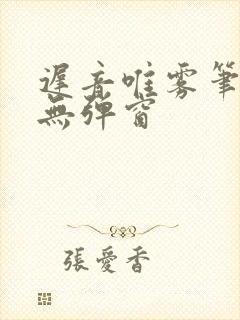 遲音唯雾筆
無弹窗
張愛香